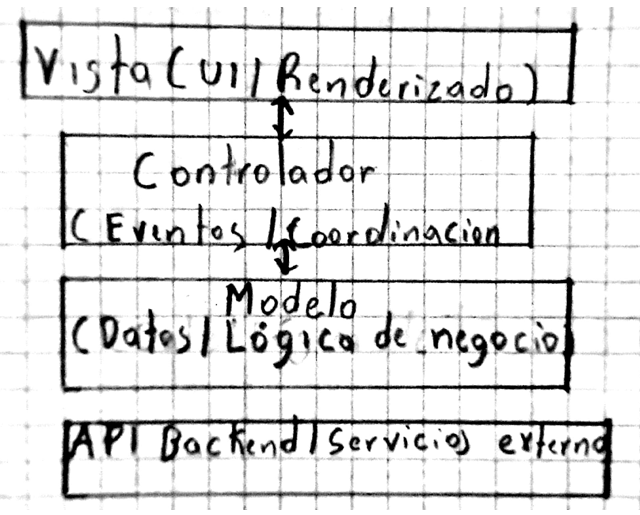 Vista (UI / Renderizado)
Controlador
(Eventos / Coordinacion
Modelo
(Datos / Lógica de negocio)
API Backend / Servicios externo